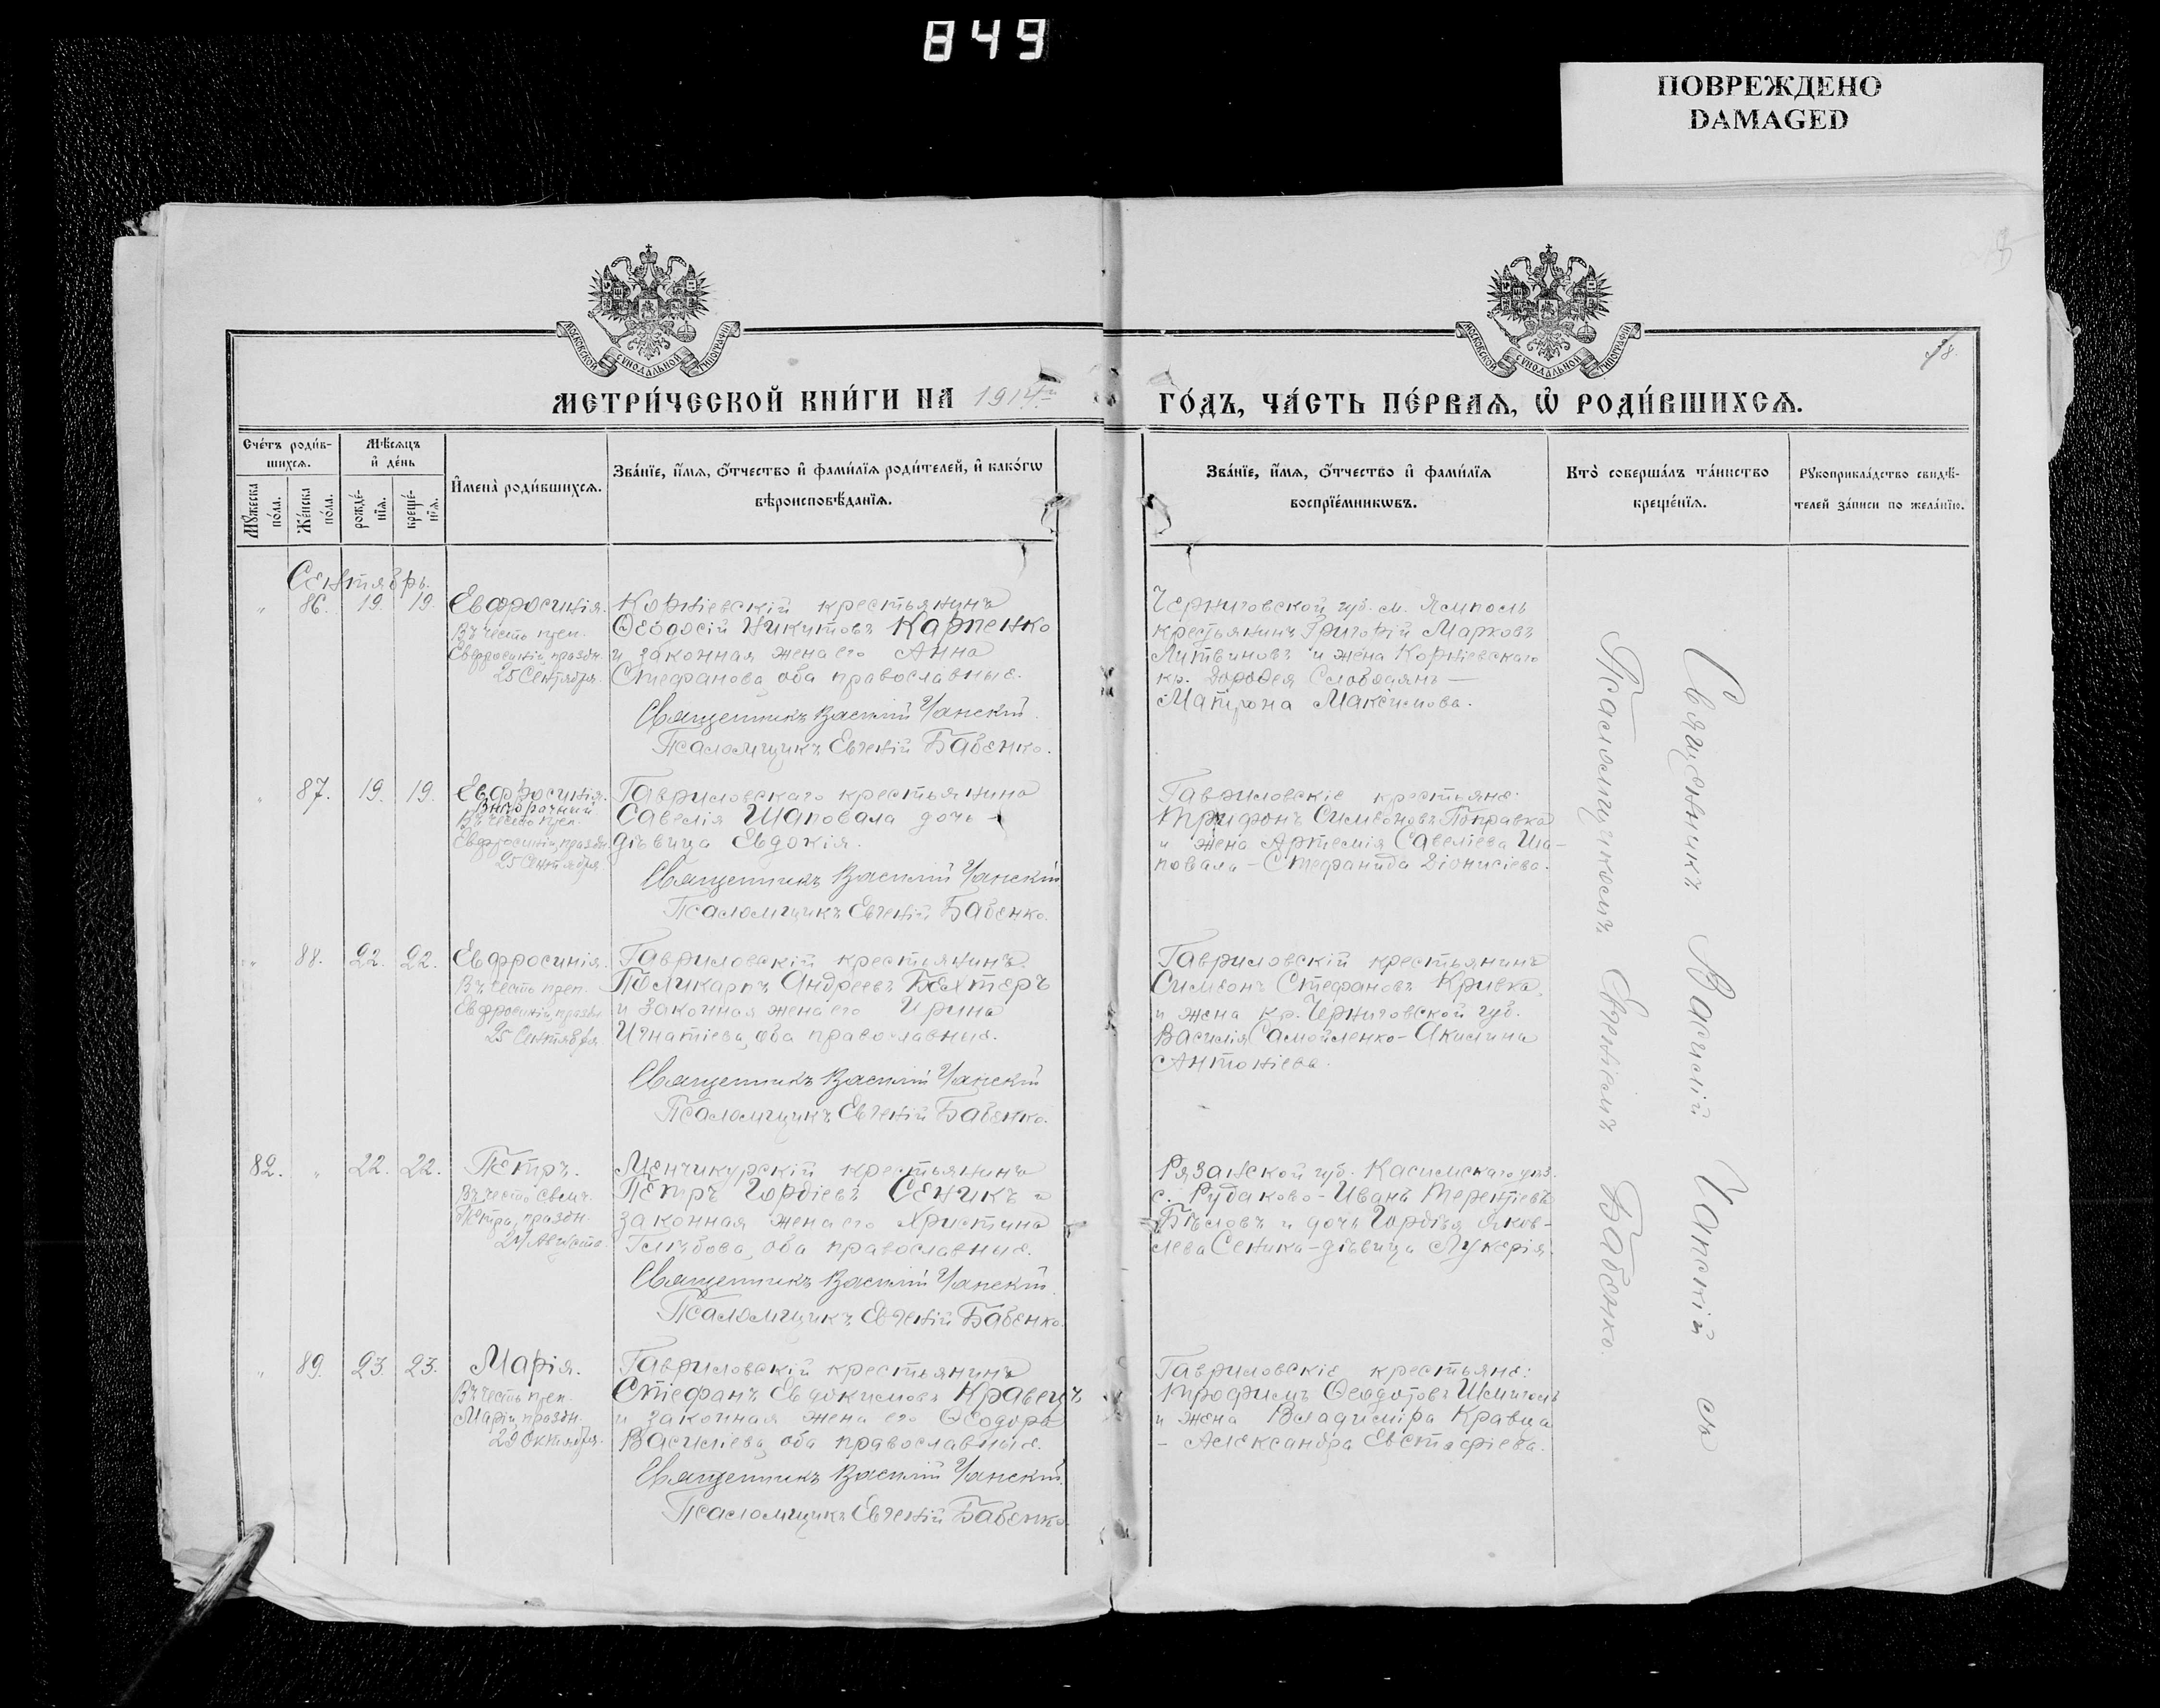 849
ПОВРЕЖДЕНО
DAMAGED
МОСКОВСКОЙ СѴНОДАЛЬНОЙ ТИПОГРАФІИ
МОСКОВСКОЙ СѴНОДАЛЬНОЙ ТИПОГРАФІИ
МЕТРИ́ЧЕСКОЙ КНИ́ГИ НА 1914й
ГО́ДЪ, ЧА́СТЬ ПЕ́РВАѦ, Ѽ РОДИ́ВШИХСѦ.
Сче́тъ роди́в-
шихсѧ.
Мѣ́сѧцъ
и҆ де́нь
Мꙋ́жеска по́ла.
Же́нска по́ла.
рожде́-
нїѧ.
креще́-
нїѧ.
И҆мена̀ роди́вшихсѧ.
Зва́нїе, и҆́мѧ, ѻ҆́тчество и҆ фами́лїѧ роди́телей, и҆ како́гѡ
вѣроисповѣ́данїѧ.
Зва́нїе, и҆́мѧ, ѻ҆́тчество и҆ фами́лїѧ
воспрїе́мникѡвъ.
Кто̀ соверша́лъ та́инство
креще́нїѧ.
Рꙋкоприкла́дство свидѣ́-
телей за́писи по жела́нїю.
Сентябрь.
" 86. 19. 19. Евфросинія.
Въ честь преп.
Евфросиніи, праздн.
25 Сентября.
Корніевскій крестьянинъ
Ѳеодосій Никитовъ Карпенко
и законная жена его Анна
Стефанова, оба православные.
Священникъ Василій Чанскій.
Псаломщикъ Евгеній Бабенко.
Черниговской губ. м. Ямполь
крестьянинъ Григорій Марковъ
Литвиновъ и жена Корніевскаго
кр. Дороѳея Слободянъ —
Матрона Максимова.
" 87. 19. 19. Евфросинія.
Внѣбрачный
Въ честь преп.
Евфросиніи, праздн.
25 Сентября
Гавриловскаго крестьянина
Савелія Шаповала дочь -
дѣвица Евдокія.
Священникъ Василій Чанскій
Псаломщикъ Евгеній Бабенко.
Гавриловскіе крестьяне:
Трифонъ Симеоновъ Поправка
и жена Артемія Савеліева Ша-
повала - Стефанида Діонисіева.
" 88. 22. 22. Евфросинія.
Въ честь преп.
Евфросиніи, праздн.
25 Сентября
Гавриловскій крестьянинъ
Поликарпъ Андреевъ Бехтеръ
и законная жена его Ирина
Игнатіева, оба православные.
Священникъ Василій Чанскій
Псаломщикъ Евгеній Бабенко.
Гавриловскій крестьянинъ
Симеонъ Стефановъ Кривка
и жена кр. Черниговской губ.
Василія Самойленко - Акилина
Антоніева.
82. " 22. 22. Петръ.
Въ честь свят.
Петра, праздн.
24 Августа.
Менчикурскій крестьянинъ
Петръ Гордіевъ Сеникъ и
законная жена его Христина
Глѣбова, оба православные.
Священникъ Василій Чанскій.
Псаломщикъ Евгеній Бабенко.
Рязанской губ. Касимскаго уѣз.
с. Рудаково - Иванъ Терентіевъ
Бѣловъ и дочь Гордѣя Яков-
лева Сеника - дѣвица Лукерія.
" 89. 23. 23. Марія.
Въ честь преп.
Маріи, праздн.
29 Октября.
Гавриловскій крестьянинъ
Стефанъ Евдокимовъ Кравецъ
и законная жена его Ѳеодора
Василіева, оба православные.
Священникъ Василій Чанскій.
Псаломщикъ Евгеній Бабенко.
Гавриловскіе крестьяне:
Трофимъ Ѳеодотовъ
и жена Владиміра Кравца
- Александра Евстафіева.
Священникъ Василій Чанскій съ
Псаломщикомъ Евгеніемъ Бабенко.